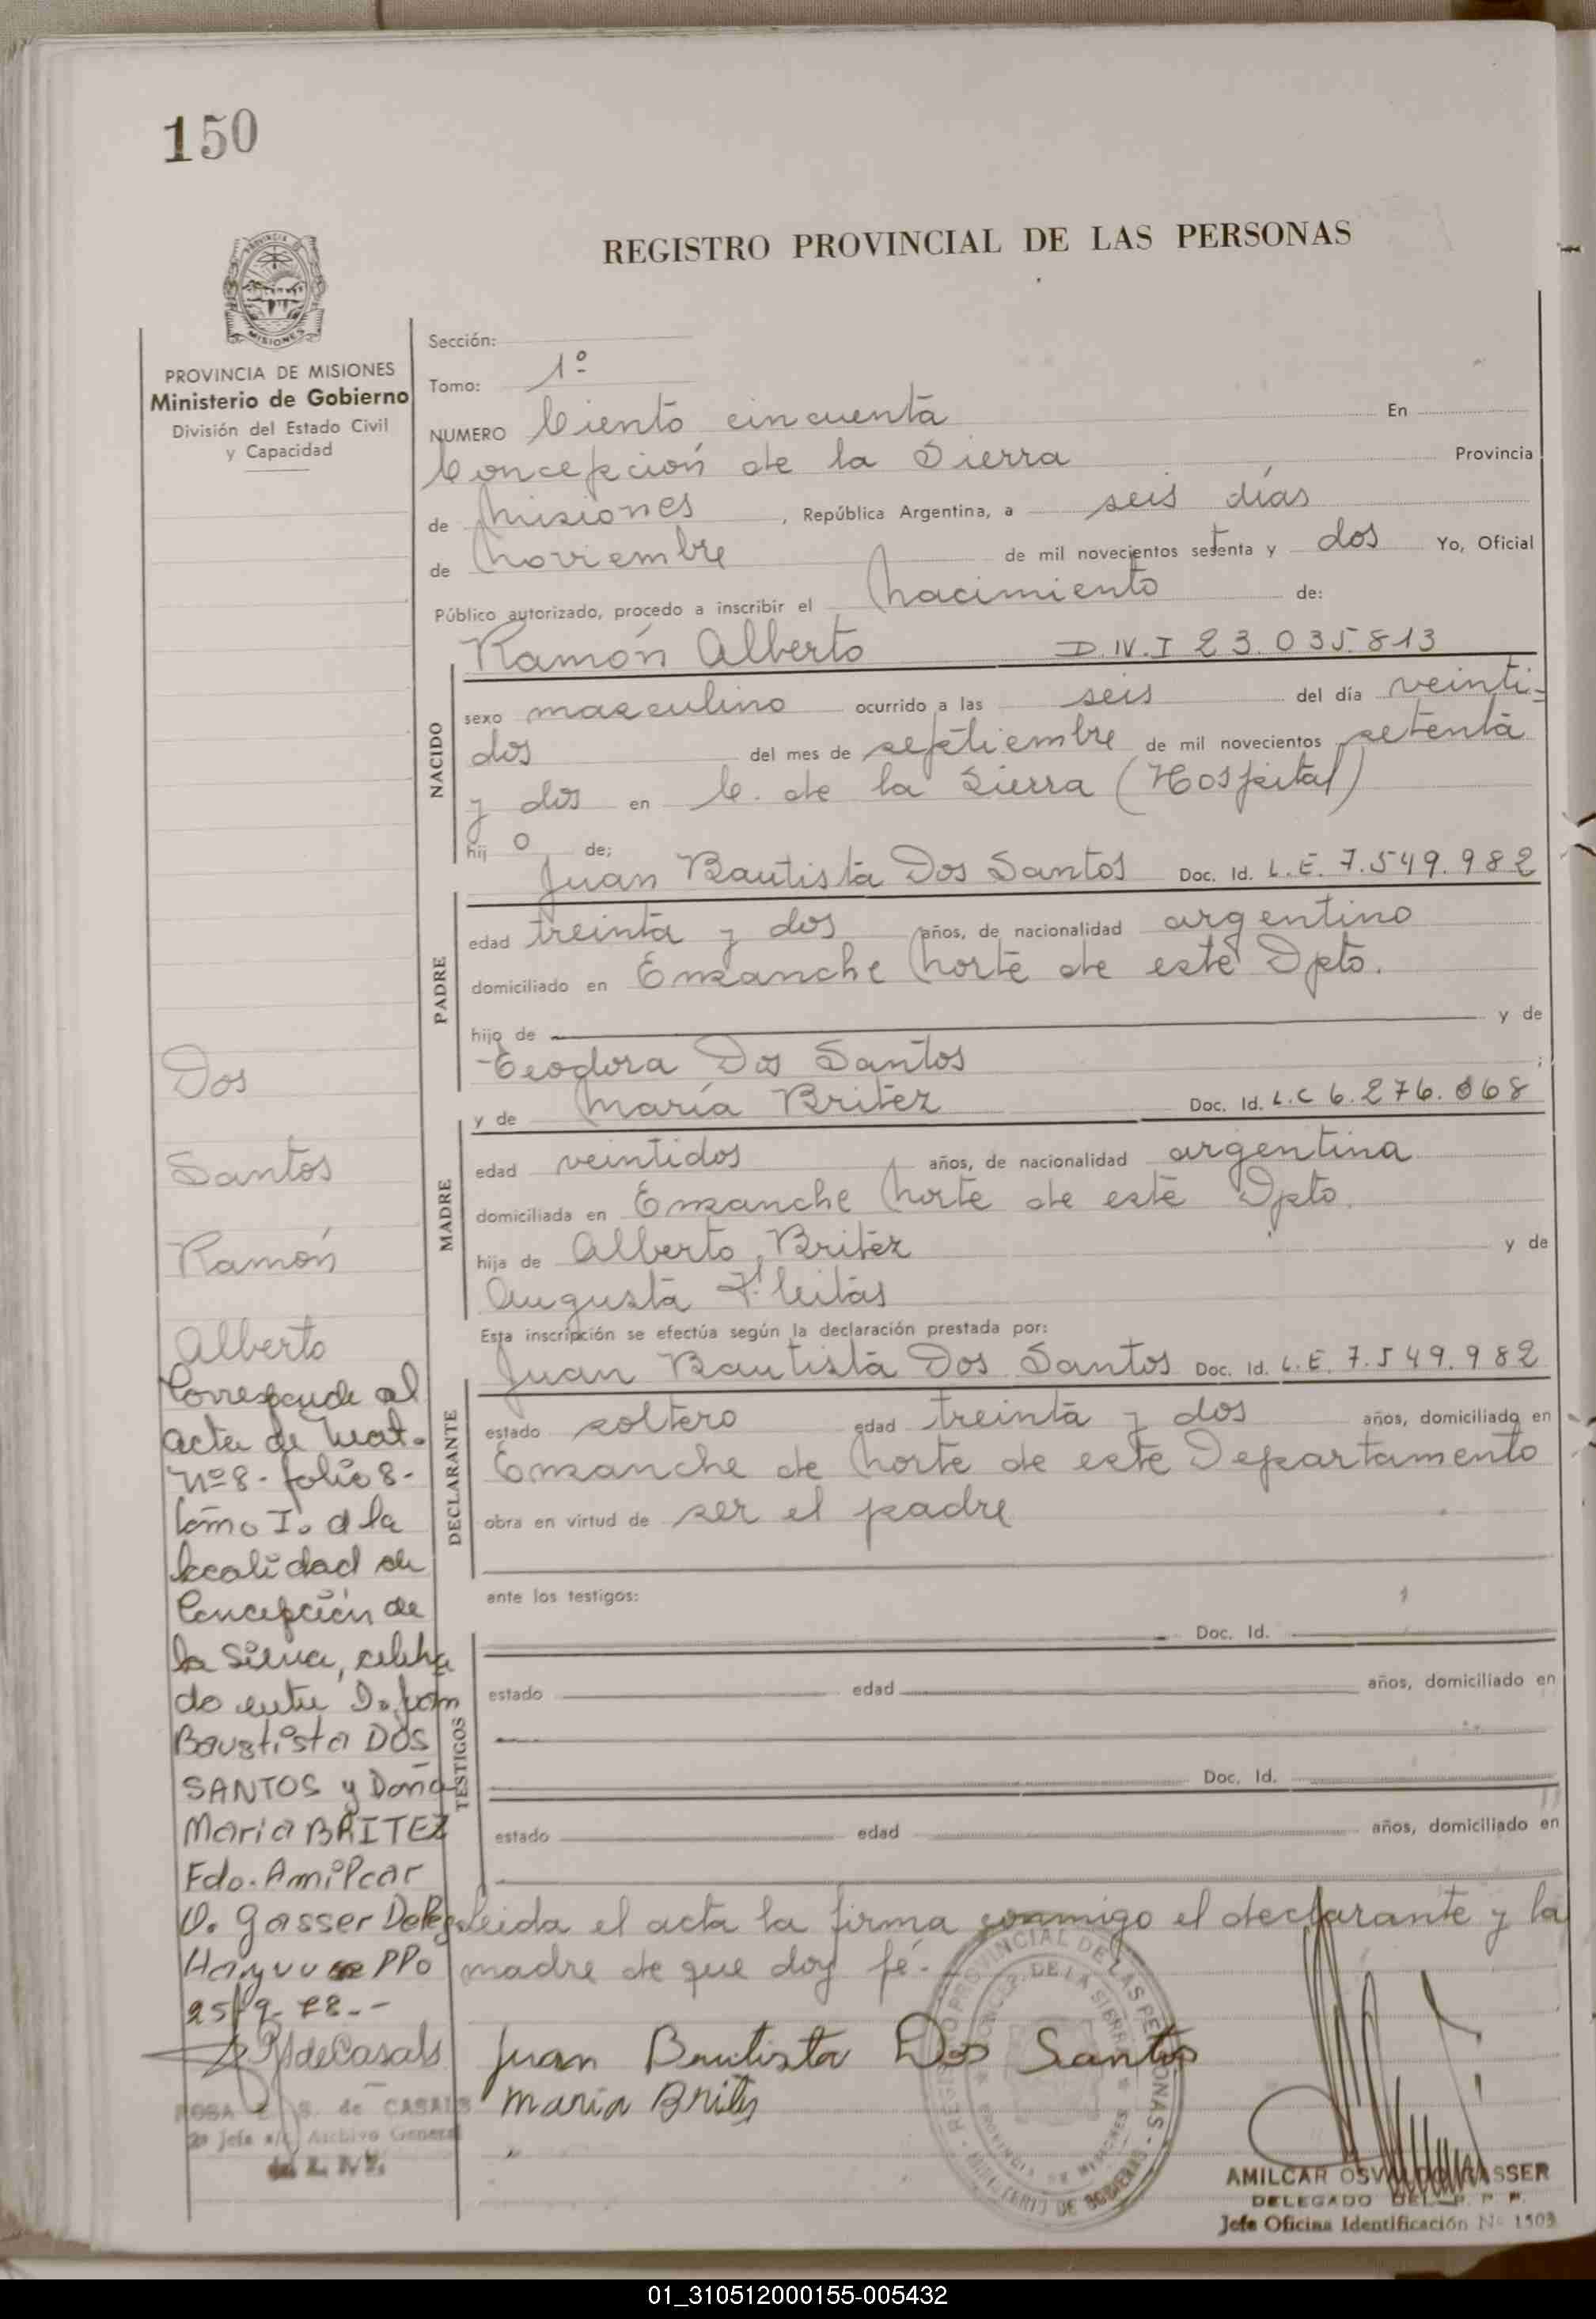 150
REGISTRO PROVINCIAL DE LAS PERSONAS
PROVINCIA DE MISIONES
Ministerio de Gobierno
División del Estado Civil
y Capacidad
Sección:
Tomo: 1º
NUMERO Ciento cincuenta En
Concepción de la Sierra Provincia
de Misiones, República Argentina, a seis días
de Noviembre de mil novecientos setenta y dos Yo, Oficial
Público autorizado, procedo a inscribir el Nacimiento de:
Ramón Alberto D.N.I 23.035.813
NACIDO
sexo masculino ocurrido a las seis del día veinti-
dos del mes de septiembre de mil novecientos setenta
y dos en C. de la Sierra (Hospital)
hij o de;
Juan Bautista Dos Santos Doc. Id. L.E. 7.549.982
PADRE
edad treinta y dos años, de nacionalidad argentino
domiciliado en Ensanche Norte de este Dpto.
hijo de y de
Teodora Dos Santos ;
y de María Britez Doc. Id. L.C 6.276.068
MADRE
edad veintidos años, de nacionalidad argentina
domiciliada en Ensanche Norte de este Dpto.
hija de Alberto Britez y de
Augusta Fleitas
Esta inscripción se efectúa según la declaración prestada por:
Juan Bautista Dos Santos Doc. Id. L.E. 7.549.982
DECLARANTE
estado soltero edad treinta y dos años, domiciliado en
Ensanche de Norte de este Departamento
obra en virtud de ser el padre
ante los testigos:
Doc. Id.
TESTIGOS
estado edad años, domiciliado en
Doc. Id.
estado edad años, domiciliado en
Leida el acta la firma conmigo el declarante y la
madre de que doy fé.-
Juan Bautista Dos Santos
Maria Britez
REGISTRO PROVINCIAL DE LAS PERSONAS
CONCEP. DE LA SIERRA
PROVINCIA DE MISIONES
MINISTERIO DE GOBIERNO
AMILCAR OSVALDO GASSER
DELEGADO DEL R. P. P.
Jefe Oficina Identificación Nº 1503
Dos
Santos
Ramón
Alberto
Corresponde al
acta de Mat.
Nº8- folio 8-
tomo I. d la
localidad de
Concepción de
la Sierra, celebra
do entre D. Juan
Baustista DOS
SANTOS y Doña
Maria BRITEZ
Fdo. Amilcar
O. Gasser Deleg.
PPO
25/9-78.-
RS de Casals
ROSA E. S. de CASALS
2º Jefa a/c Archivo General
01_310512000155-005432